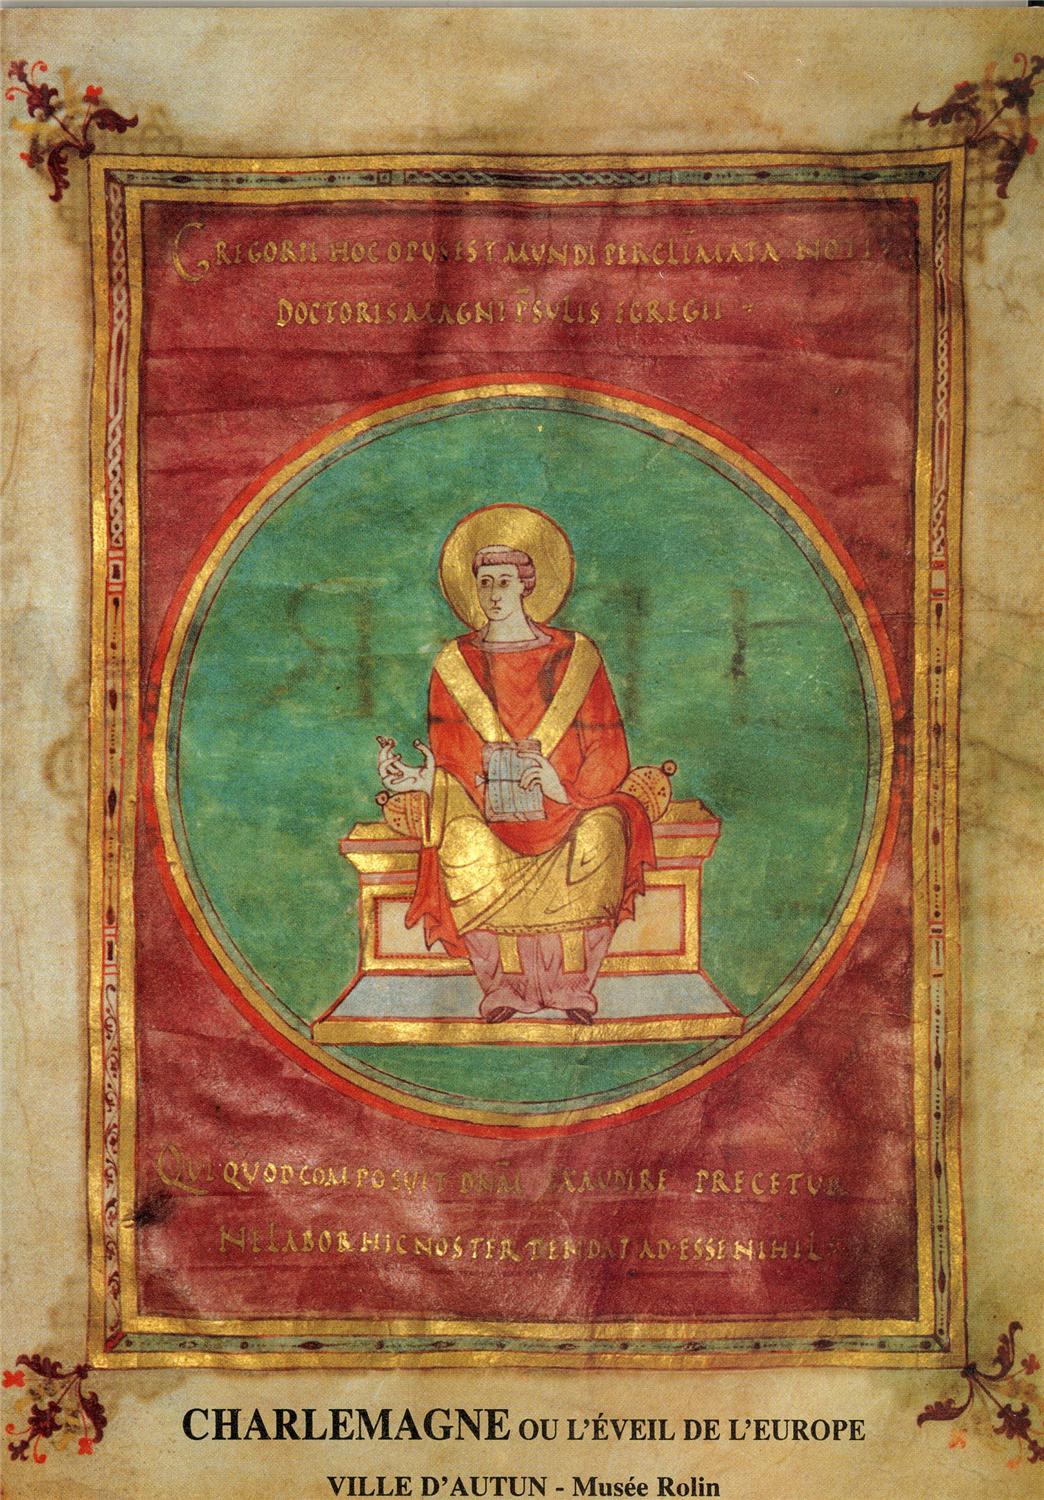 GREGORII HOC OPUS EST MUNDI PER CLIMATA NOTI
DOCTORIS MAGNI P̄SULIS EGREGII
QUI QUOD COMPOSUIT DNM̄ EXAUDIRE PRECETUR
NE LABOR HIC NOSTER TENDAT AD ESSE NIHIL
CHARLEMAGNE OU L'ÉVEIL DE L'EUROPE
VILLE D'AUTUN - Musée Rolin